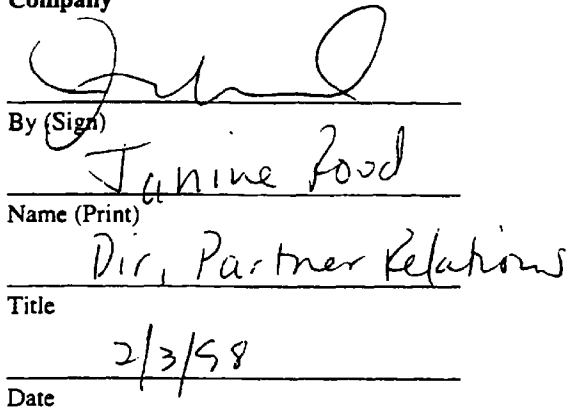 Company
By (Sign)
Janine Rood
Name (Print)
Dir, Partner Relations
Title
2/3/98
Date